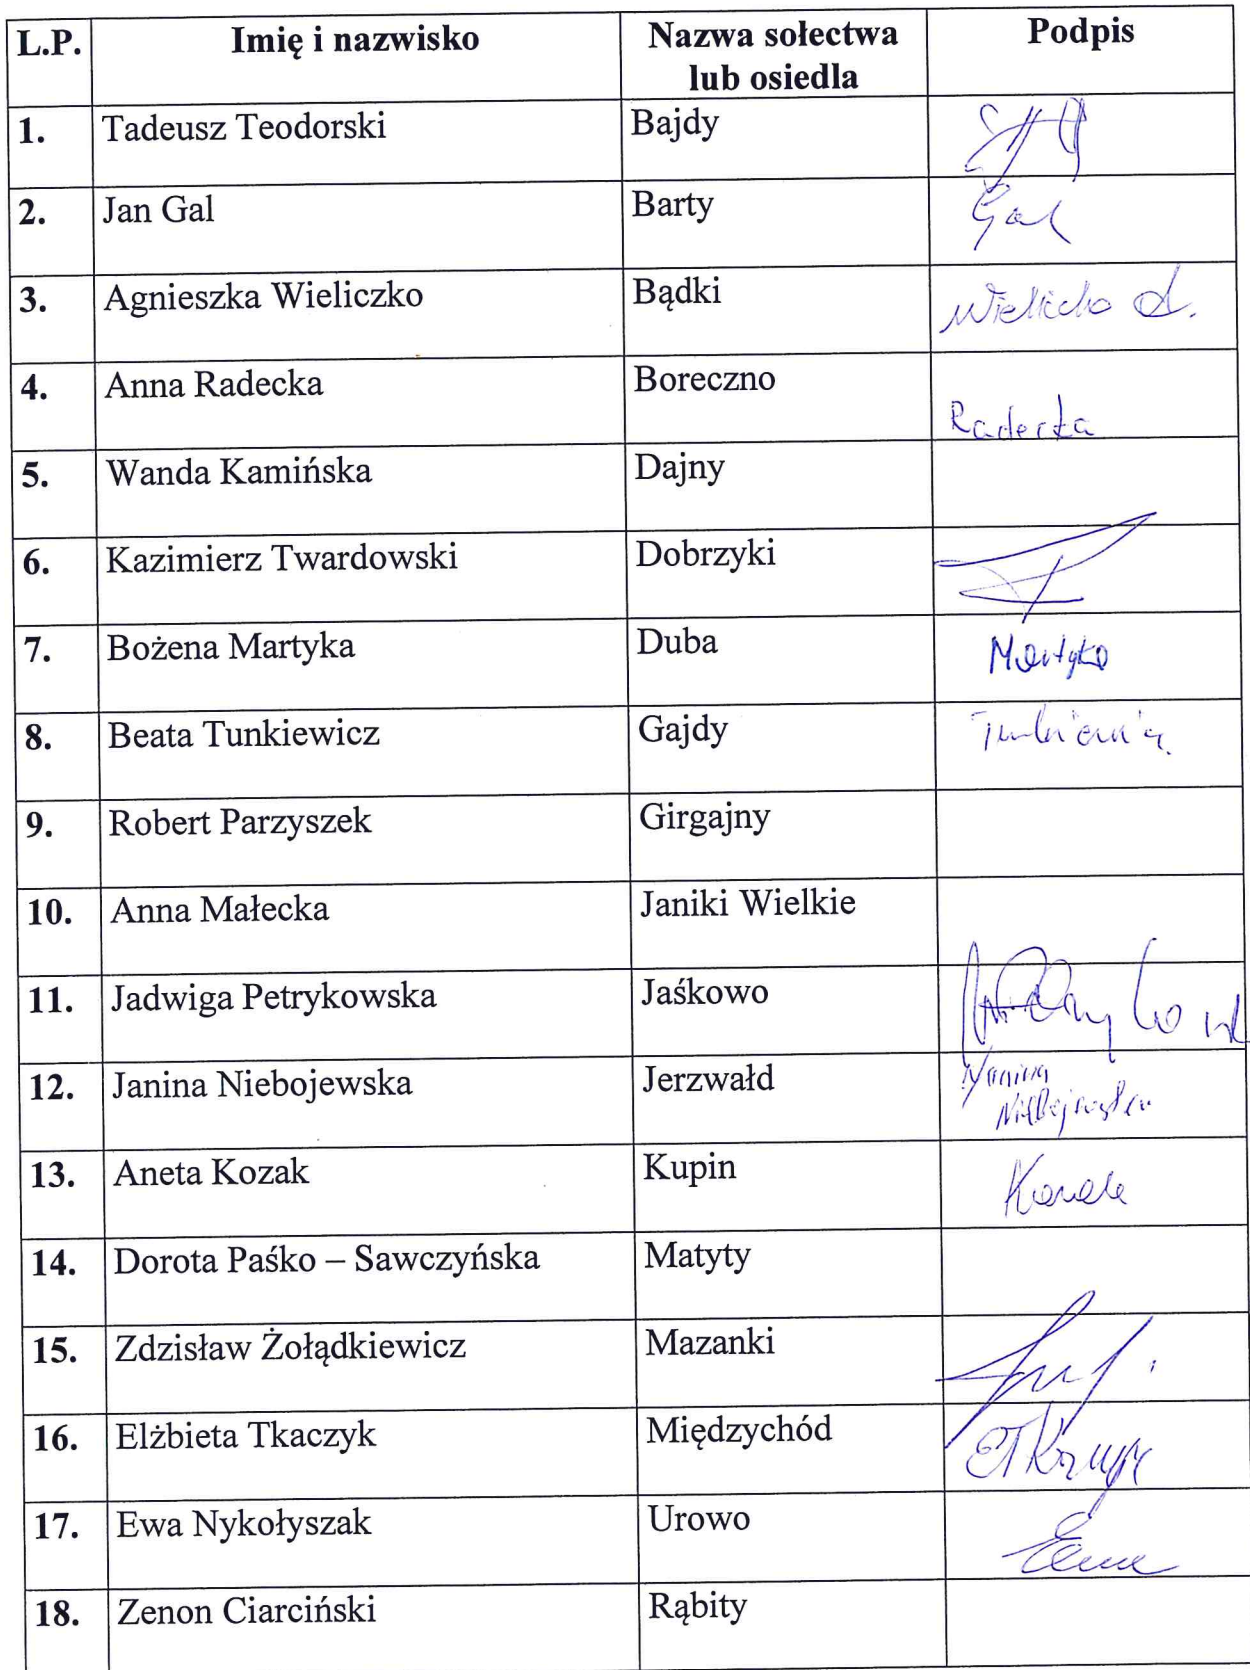 L.P. Imię i nazwisko Nazwa sołectwa Podpis
lub osiedla
1. Tadeusz Teodorski Bajdy
2. Jan Gal Barty Gal
3. Agnieszka Wieliczko Bądki
4. Anna Radecka Boreczno Radecka
5. Wanda Kamińska Dajny
6. Kazimierz Twardowski Dobrzyki
7. Bożena Martyka Duba Martyka
8. Beata Tunkiewicz Gajdy
9. Robert Parzyszek Girgajny
10. Anna Małecka Janiki Wielkie
11. Jadwiga Petrykowska Jaśkowo
12. Janina Niebojewska Jerzwałd Janina
13. Aneta Kozak Kupin
14. Dorota Paśko – Sawczyńska Matyty
15. Zdzisław Żołądkiewicz Mazanki
16. Elżbieta Tkaczyk Międzychód
17. Ewa Nykołyszak Urowo
18. Zenon Ciarciński Rąbity